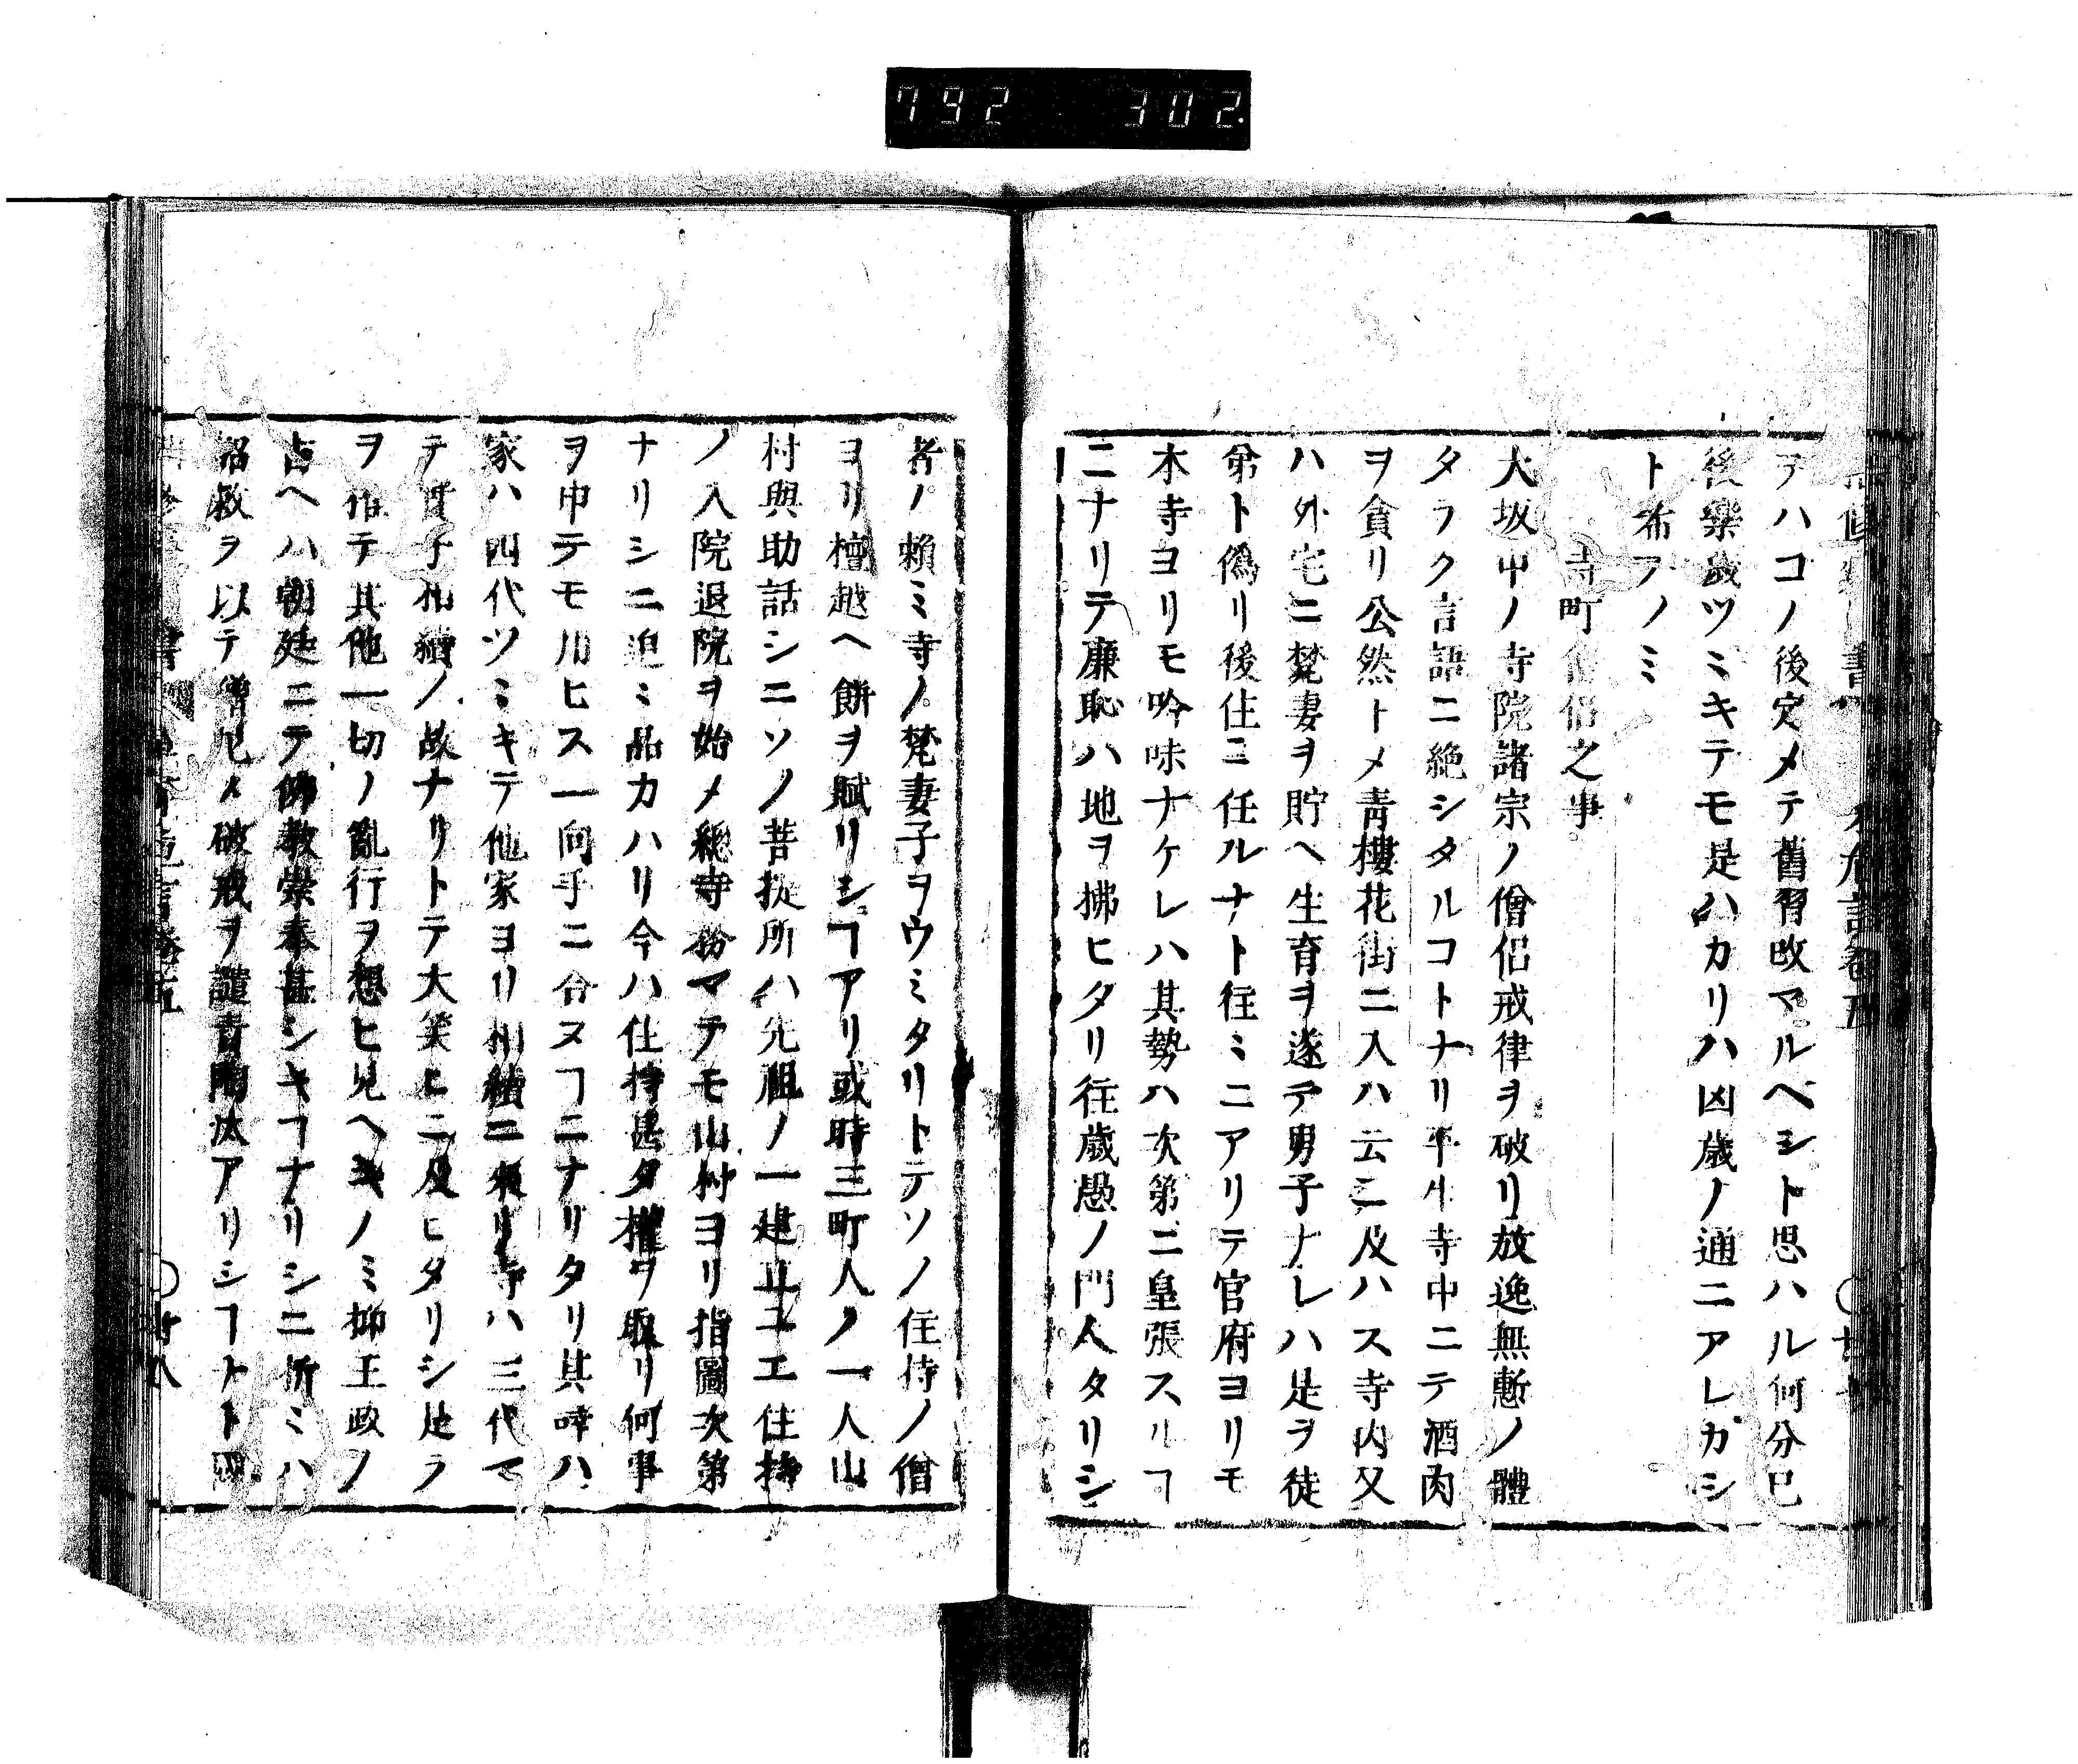 792 302.
テハコノ後定メテ舊習改マルヘシト思ハル何分已
後樂歳ツミキテモ是ハカリハ凶歳ノ通ニアレカシ
ト希フノミ
寺町僧侶之事
大坂中ノ寺院諸宗ノ僧侶戒律ヲ破リ放逸無慙ノ體
タラク言語ニ絶シタルコトナリ平生寺中ニテ酒肉
ヲ貪リ公然トメ青樓花街ニ入ハ云ニ及ハス寺内又
ハ外宅ニ梵妻ヲ貯ヘ生育ヲ遂テ男子ナレハ是ヲ徒
弟ト僞リ後住ニ任ルナト往ミニアリテ官府ヨリモ
本寺ヨリモ吟味ナケレハ其勢ハ次第ニ皇張スルヿ
ニナリテ廉恥ハ地ヲ拂ヒタリ往歳愚ノ門人タリシ
者ノ賴ミ寺ノ梵妻子ヲウミタリトテソノ住侍ノ僧
ヨリ檀越ヘ餅ヲ賦リシヿアリ或時三町人ノ一人山
村與助話シニソノ菩提所ハ先祖ノ一建立ユエ住持
ノ入院退院ヲ始メ總寺務マテモ山村ヨリ指圖次第
ナリシニ追ミ品カハリ今ハ住持甚タ權ヲ取リ何事
ヲ申テモ用ヒス一向手ニ合ヌヿニナリタリ其時ハ
家ハ四代ツミキテ他家ヨリ相續ニ來リ寺ハ三代マ
テ實子相續ノ故ナリトテ大笑ヒニ及ヒタリシ是ラ
ヲ推テ其他一切ノ亂行ヲ想ヒ見ヘキノミ抑王政ノ
古ヘハ朝廷ニテ佛教崇奉甚シキヿナリシニ折ミハ
詔敕ヲ以テ僧尼メ破戒ヲ譴責陶汰アリシヿトト國